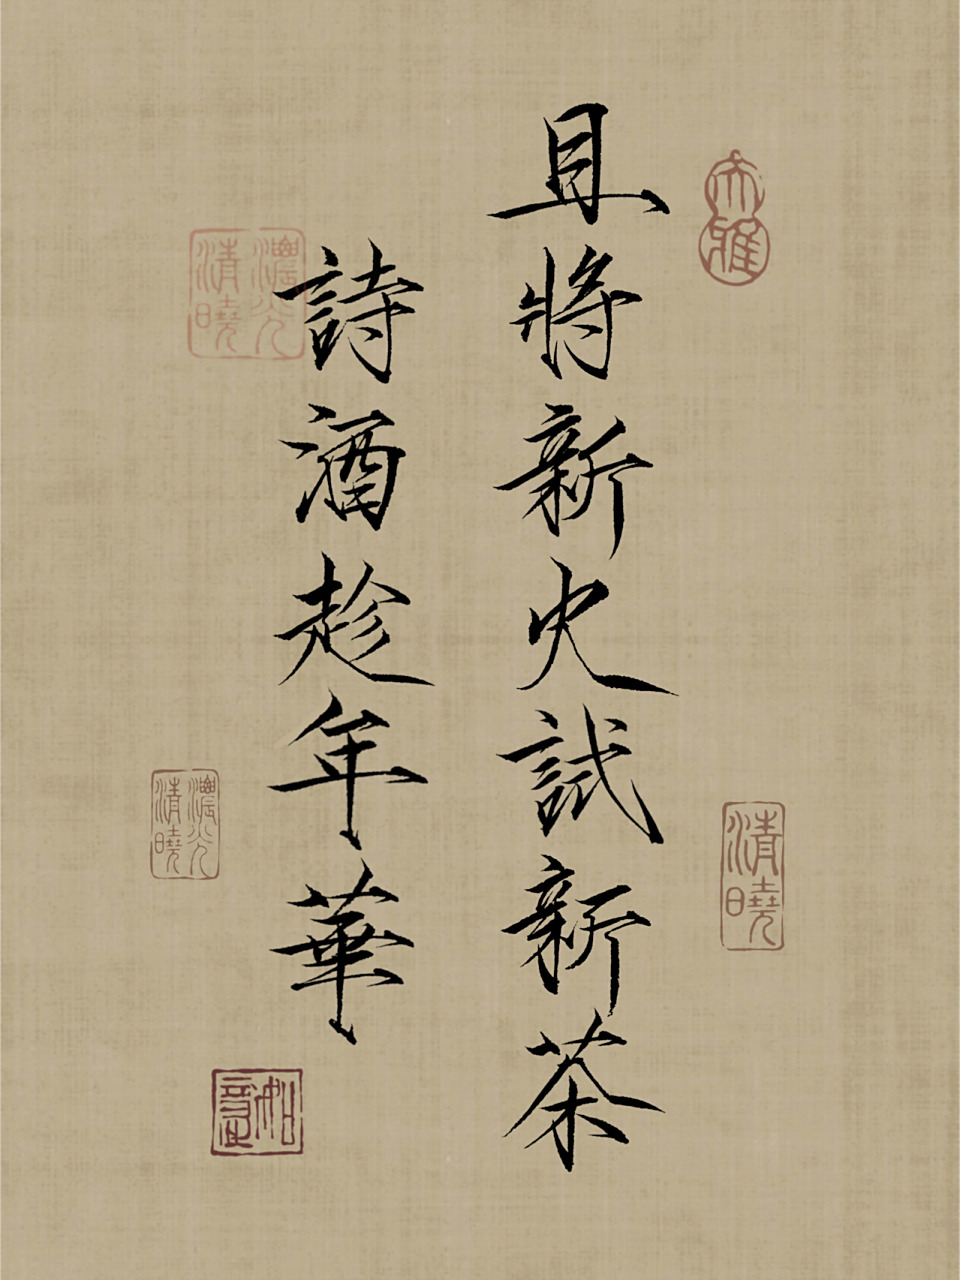 且將新火試新茶
詩酒趁年華
大雅
濃光清曉
濃光清曉
清曉
如意